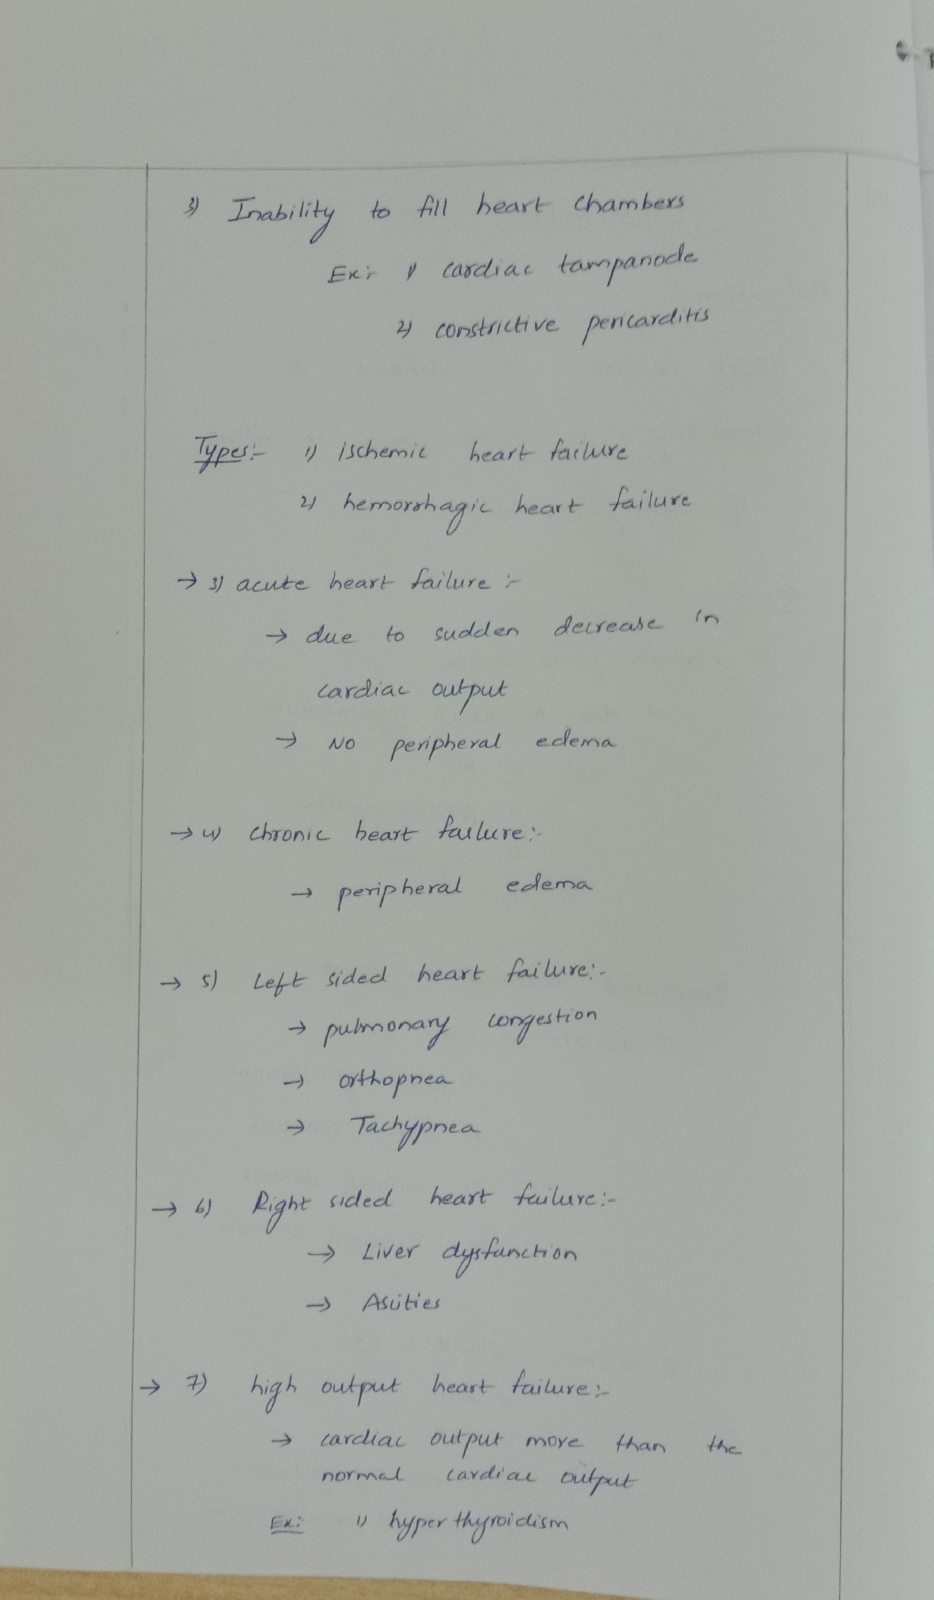 3) Inability to fill heart chambers
Ex:- 1) cardiac tampanode
2) constrictive pericarditis
Types:- 1) ischemic heart failure
2) hemorrhagic heart failure
→ 3) acute heart failure :-
→ due to sudden decrease in
cardiac output
→ NO peripheral edema
→ 4) chronic heart failure:-
→ peripheral edema
→ 5) Left sided heart failure:-
→ pulmonary congestion
→ orthopnea
→ Tachypnea
→ 6) Right sided heart failure:-
→ Liver dysfunction
→ Asities
→ 7) high output heart failure:-
→ cardiac output more than the
normal cardiac output
Ex: 1) hyper thyroidism